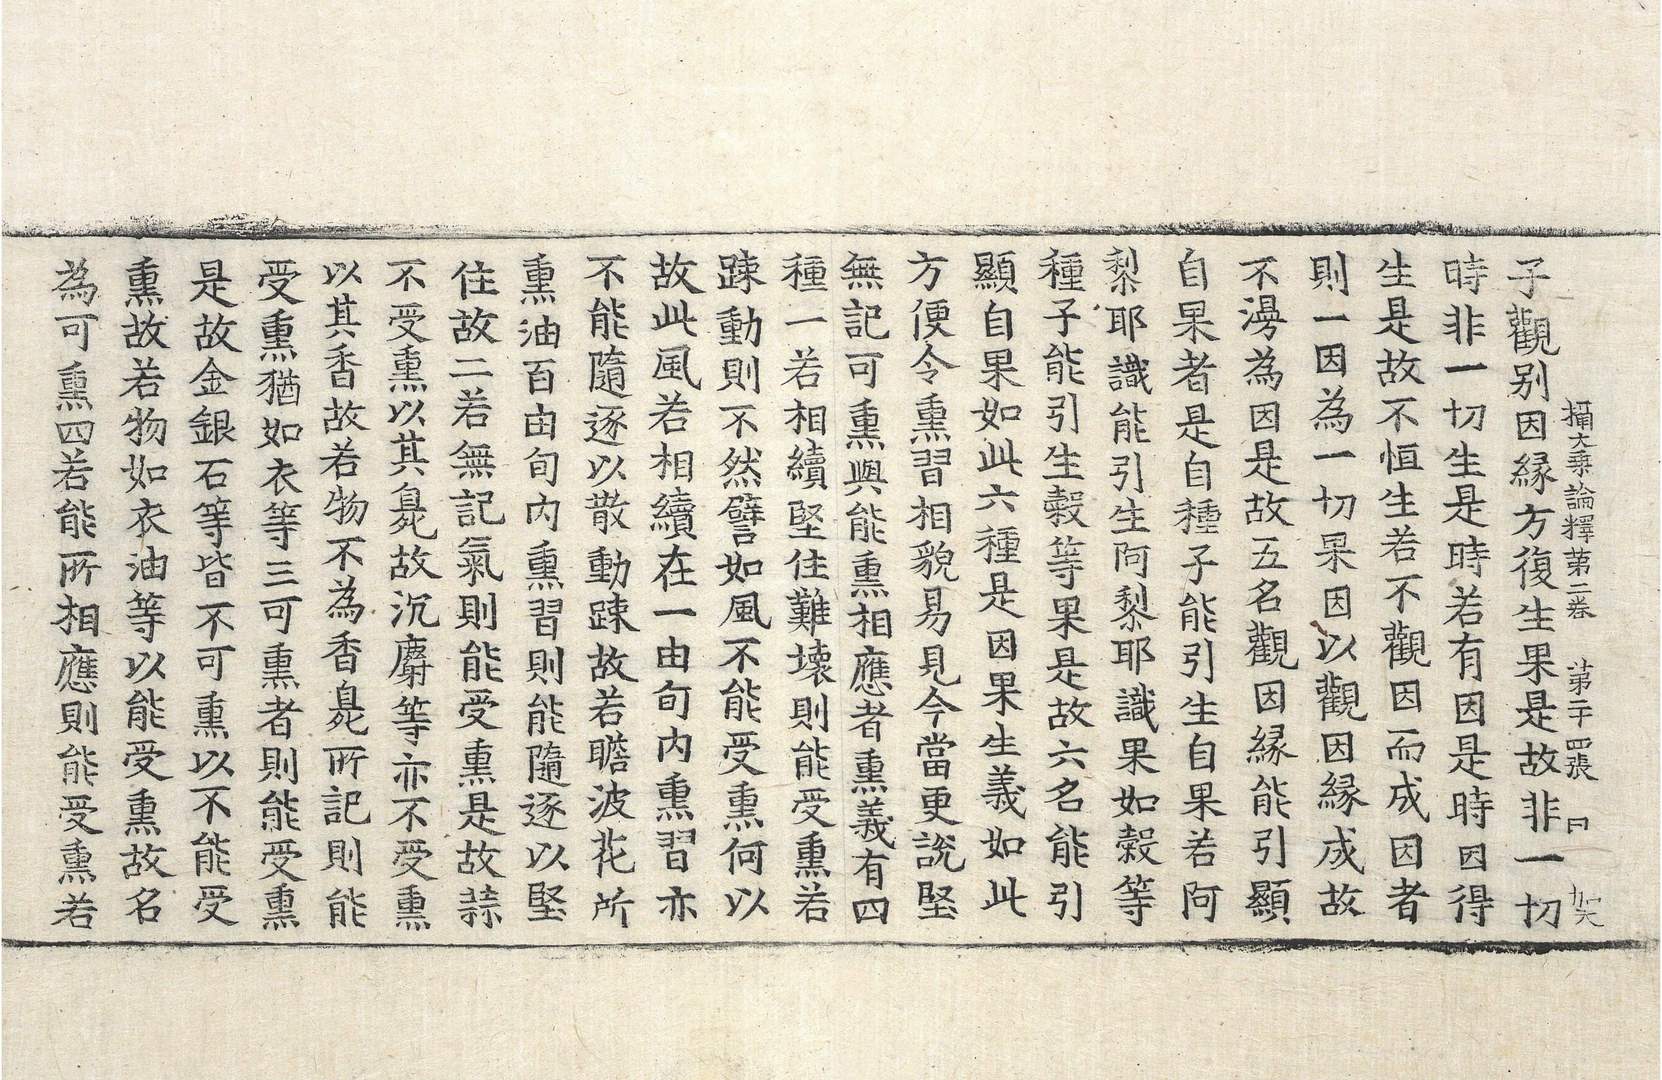 攝大乘論釋第二卷　第二十四張　因　九大
子觀別因緣方復生果是故非一切
時非一切生是時若有因是時因得
生是故不恒生若不觀因而成因者
則一因為一切果因以觀因緣成故
不澷為因是故五名觀因緣能引顯
自果者是自種子能引生自果若阿
梨耶識能引生阿梨耶識果如穀等
種子能引生穀等果是故六名能引
顯自果如此六種是因果生義如此
方便令熏習相貌易見今當更說堅
無記可熏與能熏相應者熏義有四
種一若相續堅住難壞則能受熏若
踈動則不然譬如風不能受熏何以
故此風若相續在一由旬內熏習亦
不能隨逐以散動踈故若瞻波花所
熏油百由旬內熏習則能隨逐以堅
住故二若無記氣則能受熏是故蒜
不受熏以其臭故沉麝等亦不受熏
以其香故若物不為香臭所記則能
受熏猶如衣等三可熏者則能受熏
是故金銀石等皆不可熏以不能受
熏故若物如衣油等以能受熏故名
為可熏四若能所相應則能受熏若